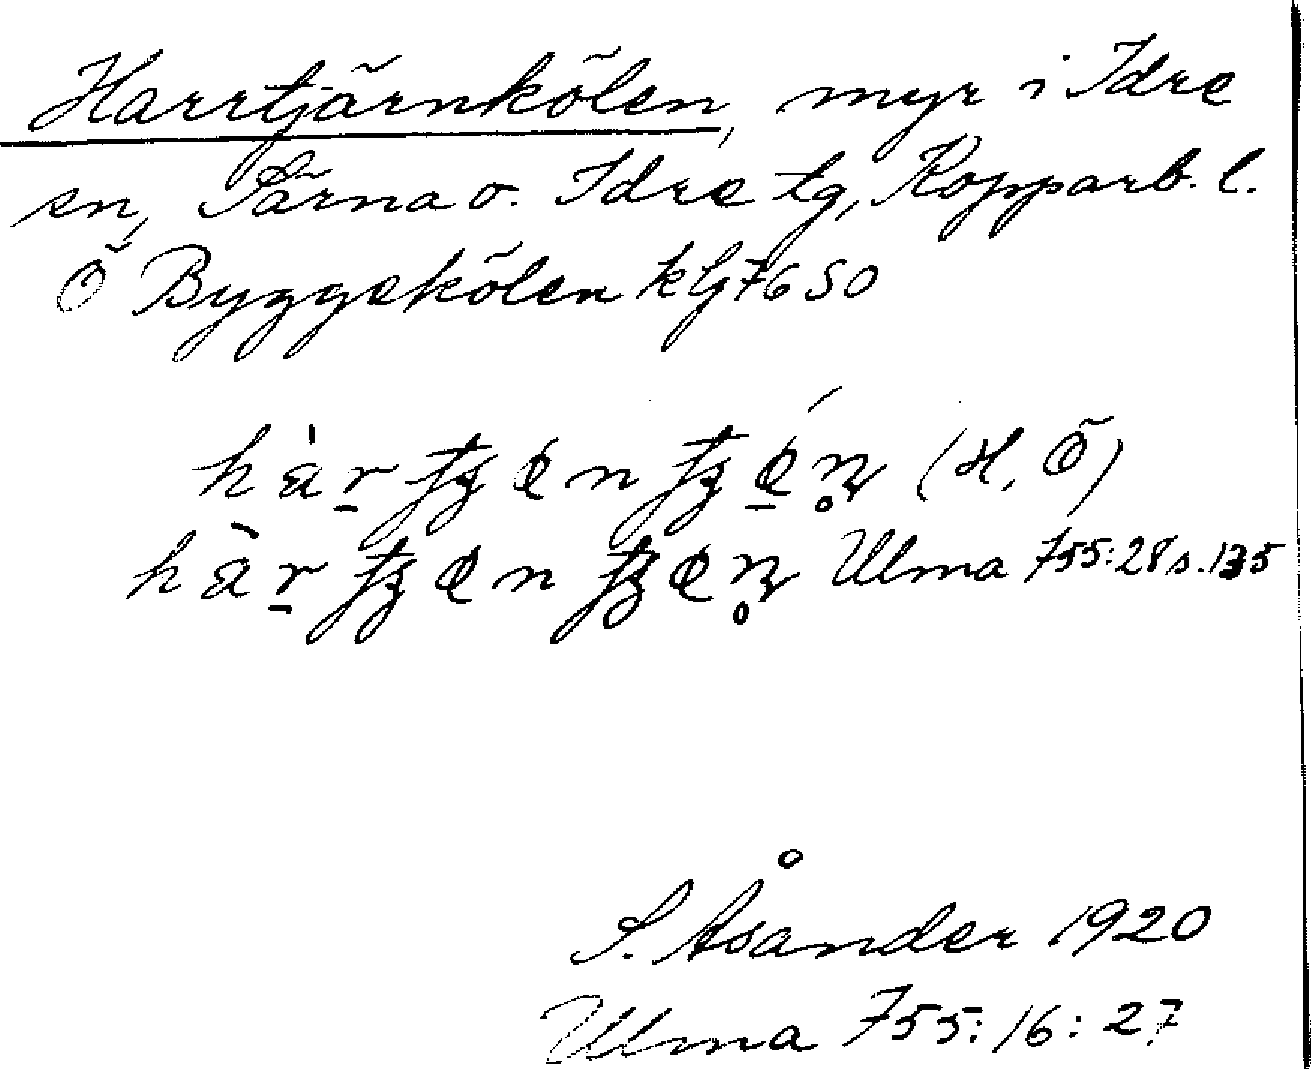 Harrtjärnkölen, myr i Idre
sn, Särna o. Idre tg, Kopparb. l.
Ö Byggekölen kG 7650
(H, Ö)
Ulma 755:28 s. 135
S. Åsander 1920
Ulma 755:16:27